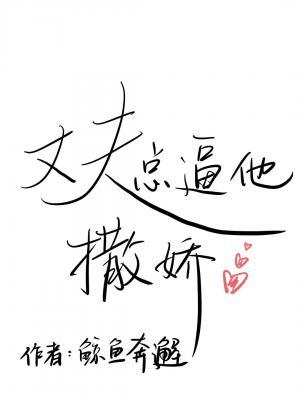 丈夫总逼他
撒娇
作者:鲸鱼奔邂